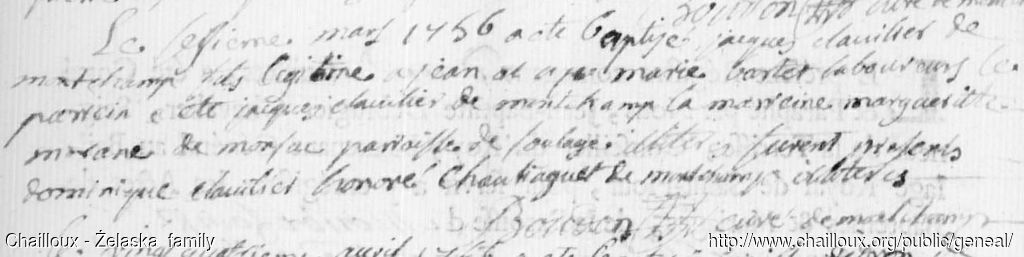 Bouvon curé de montchamp
Le sesieme mars 1756 a ete baptise jacques clavilier de
montchamp fils legitime a jean et a marie bartet laboureurs le
parrein a ete jacques clavilier de montchamp la marreine margueritte
morane de monsac parroisse de soulage illiteres furent presents
dominique clavilier honoré Chautraguet de montchamp illiteres
Bouvon curé de montchamp
le vingt quatrieme avril 1756 a ete
Chailloux - Żelaska family
http://www.chailloux.org/public/geneal/